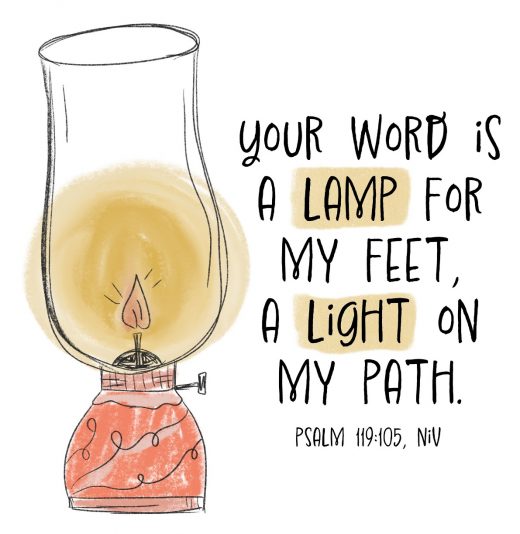 YOUR WORD iS
A LAMP FOR
MY FEET,
A LiGHT ON
MY PATH.
PSALM 119:105, NiV